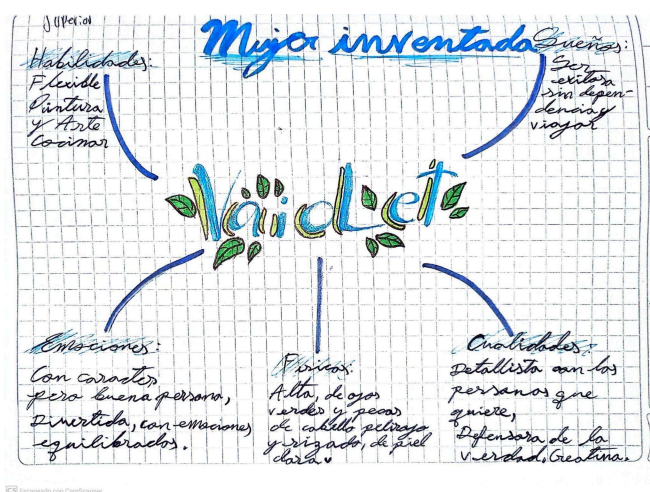 Superior
Mujer inventada
Habilidades:
Flexible
Pintura
y Arte
Cocinar
Sueños:
Ser
exitosa
sin depen-
dencia y
viajar
Vaidlet
Emociones:
Con caracter
pero buena persona,
Divertida, con emociones
equilibradas.
Físicas:
Alta, de ojos
verdes y pecas
de cabello pelirojo
y rizado, de piel
clara
Cualidades:
Detallista con las
personas que
quiere,
Defensora de la
verdad, Creativa.
CS Escaneado con CamScanner